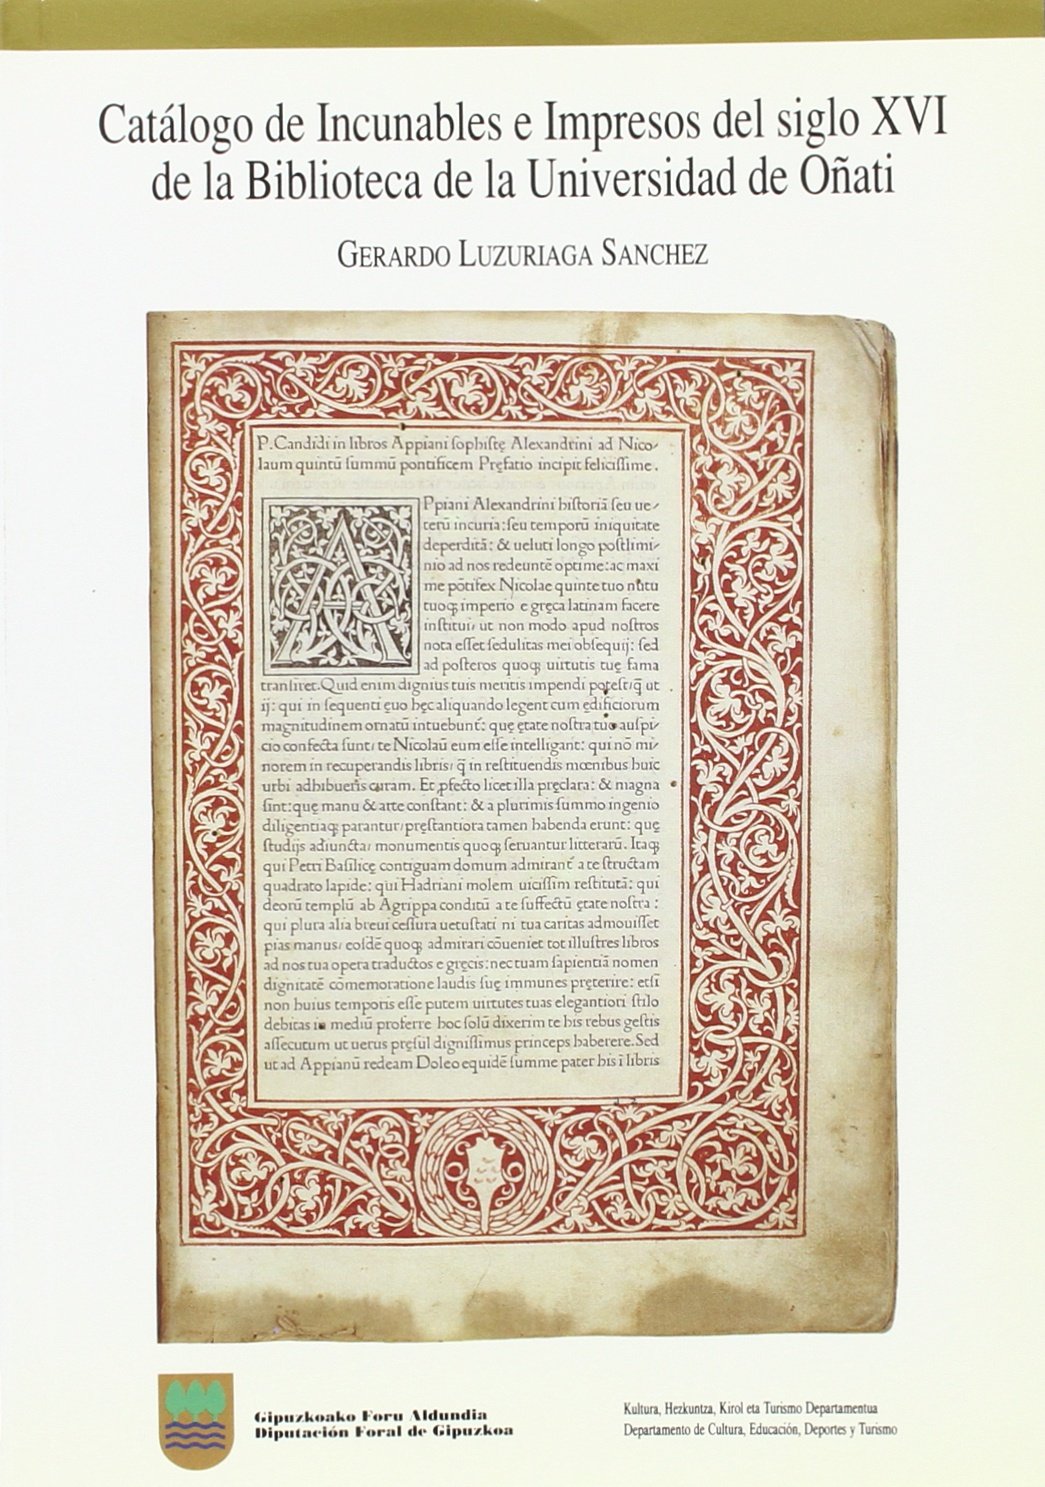 Catálogo de Incunables e Impresos del siglo XVI
de la Biblioteca de la Universidad de Oñati
GERARDO LUZURIAGA SANCHEZ
P. Candidi in libros Appiani sophistę Alexandrini ad Nico-
laum quintū summū pontificem Pręfatio incipit felicissime.
APpiani Alexandrini historiā seu ue-
terū incuria: seu temporū iniquitate
deperditā: & ueluti longo postlimi-
nio ad nos redeuntē optime: ac maxi
me pōtifex Nicolae quinte tuo nutu
tuoqꝫ imperio e gręca latinam facere
institui, ut non modo apud nostros
nota esset sedulitas mei obsequij: sed
ad posteros quoqꝫ uirtutis tuę fama
transiret. Quid enim dignius tuis meritis impendi potest, q̄ ut
ij: qui in sequenti ęuo hęc aliquando legent cum ędificiorum
magnitudinem ornatū intuebunt̄: quę ętate nostra tuo auspi-
cio confecta sunt, te Nicolaū eum esse intelligant: qui nō mi-
norem in recuperandis libris, q̄ in restituendis mœnibus huic
urbi adhibueris curam. Et ꝓfecto licet illa pręclara: & magna
sint: quę manu & arte constant: & a plurimis summo ingenio
diligentiaqꝫ parantur, pręstantiora tamen habenda erunt: quę
studijs adiuncta, monumentis quoqꝫ seruantur litterarū. Itaqꝫ
qui Petri Basilicę contiguam domum admirant̄ a te structam
quadrato lapide: qui Hadriani molem uicissim restitutā: qui
deorū templū ab Agrippa conditū a te suffectū ętate nostra:
qui plura alia breui cessura uetustati ni tua caritas admouisset
pias manus, eosdē quoqꝫ admirari cōueniet tot illustres libros
ad nos tua opera traductos e gręcis: nec tuam sapientiā nomen
dignitatē cōmemoratione laudis suę immunes pręterire: etsi
non huius temporis esse putem uirtutes tuas elegantiori stilo
debitas in mediū proferre hoc solū dixerim te his rebus gestis
assecutum ut uetus pręsul dignissimus princeps haberere. Sed
ut ad Appianū redeam Doleo equidē summe pater his ī libris
Gipuzkoako Foru Aldundia
Diputación Foral de Gipuzkoa
Kultura, Hezkuntza, Kirol eta Turismo Departamentua
Departamento de Cultura, Educación, Deportes y Turismo